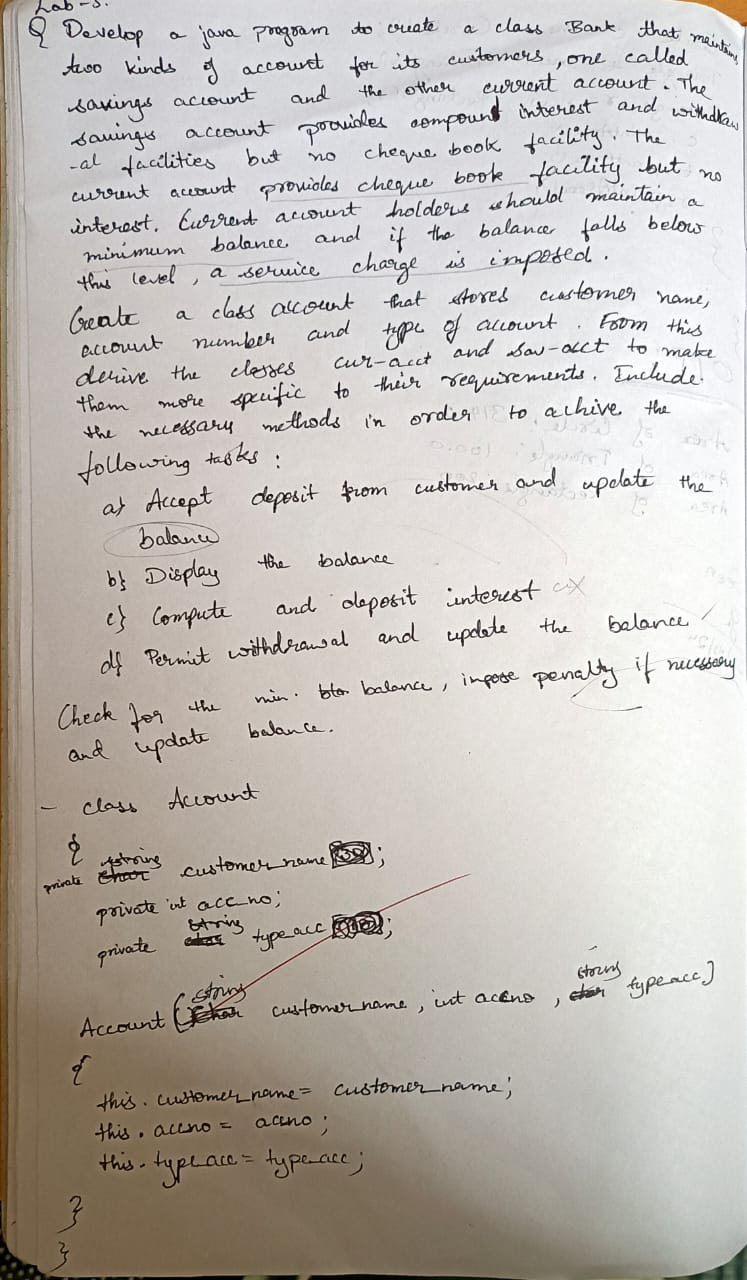 Lab-5.
Q Develop a java program to create a class Bank that maintains
two kinds of account for its customers, one called
savings account and the other current account. The
savings account provides compound interest and withdraw
-al facilities but no cheque book facility. The
current account provides cheque book facility but no
interest. Current account holders should maintain a
minimum balance and if the balance falls below
this level, a service charge is imposed.
Create a class account that stores customer name,
account number and type of account. From this
derive the classes cur-acct and sav-acct to make
them more specific to their requirements. Include
the necessary methods in order to achive the
following tasks :
a} Accept deposit from customer and update the
balance
b} Display the balance
c} Compute and deposit interest
d} Permit withdrawal and update the balance
Check for the min. balance, impose penalty if necessary
and update balance.
- class Account
{
private string customer_name ;
private int acc_no;
private string type_acc ;
Account (string customer_name, int accno, string type_acc)
{
this. customer_name = customer_name;
this. accno = accno;
this. type_acc = type_acc;
}
}